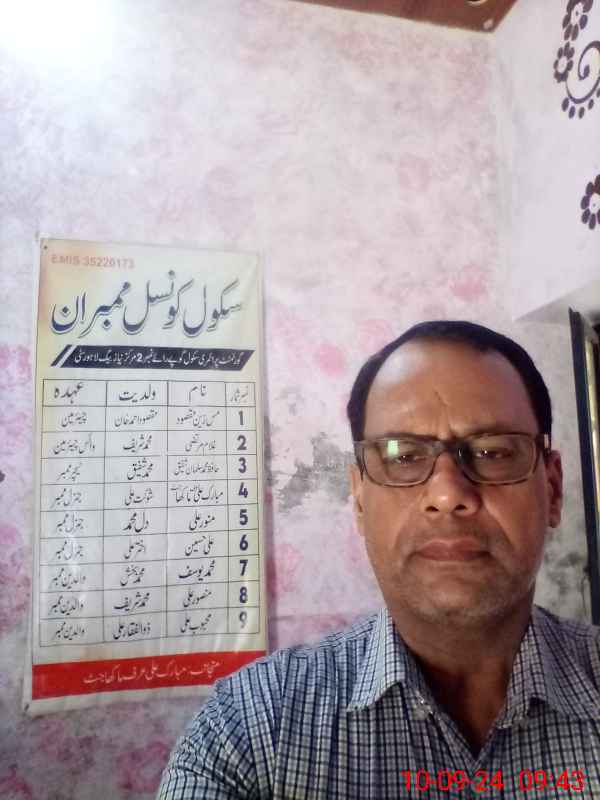 EMIS 35220173
سکول کونسل ممبران
گورنمنٹ پرائمری سکول گوپے رائے نمبر 2 مرکز نیاز بیگ لاہور سٹی
نمبر شمار نام ولدیت عہدہ
1 مس زین مقصود مقصود احمد خان چیئرمین
2 غلام مرتضیٰ محمد شریف وائس چیئرمین
3 حافظ محمد سلمان شفیق محمد شفیق ٹیچر ممبر
4 مبارک علی شوکت علی جنرل ممبر
5 منور علی دل محمد جنرل ممبر
6 علی حسین اختر علی جنرل ممبر
7 محمد یوسف محمد بخش والدین ممبر
8 منصور علی محمد شریف والدین ممبر
9 محبوب علی ذوالفقار علی والدین ممبر
منجانب: مبارک علی عرف ماکھا جٹ
10-09-24 09:43